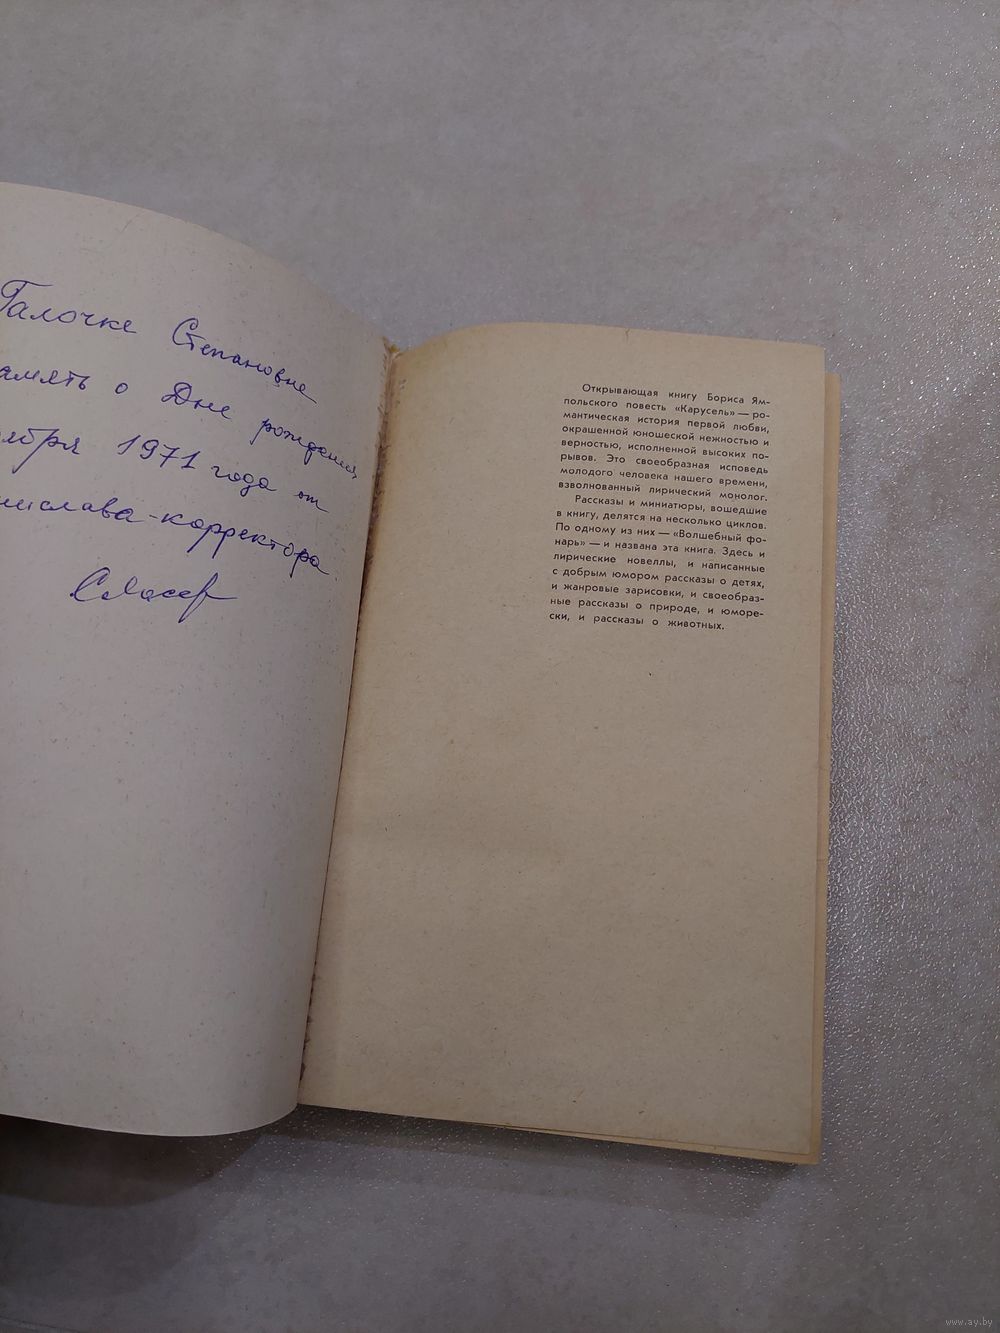 Галочке Степановне
амять о Дне рождения
ября 1971 года от
нислава-корректора.
Открывающая книгу Бориса Ям-
польского повесть «Карусель» — ро-
мантическая история первой любви,
окрашенной юношеской нежностью и
верностью, исполненной высоких по-
рывов. Это своеобразная исповедь
молодого человека нашего времени,
взволнованный лирический монолог.
Рассказы и миниатюры, вошедшие
в книгу, делятся на несколько циклов.
По одному из них — «Волшебный фо-
нарь» — и названа эта книга. Здесь и
лирические новеллы, и написанные
с добрым юмором рассказы о детях,
и жанровые зарисовки, и своеобраз-
ные рассказы о природе, и юморе-
ски, и рассказы о животных.
www.ay.by